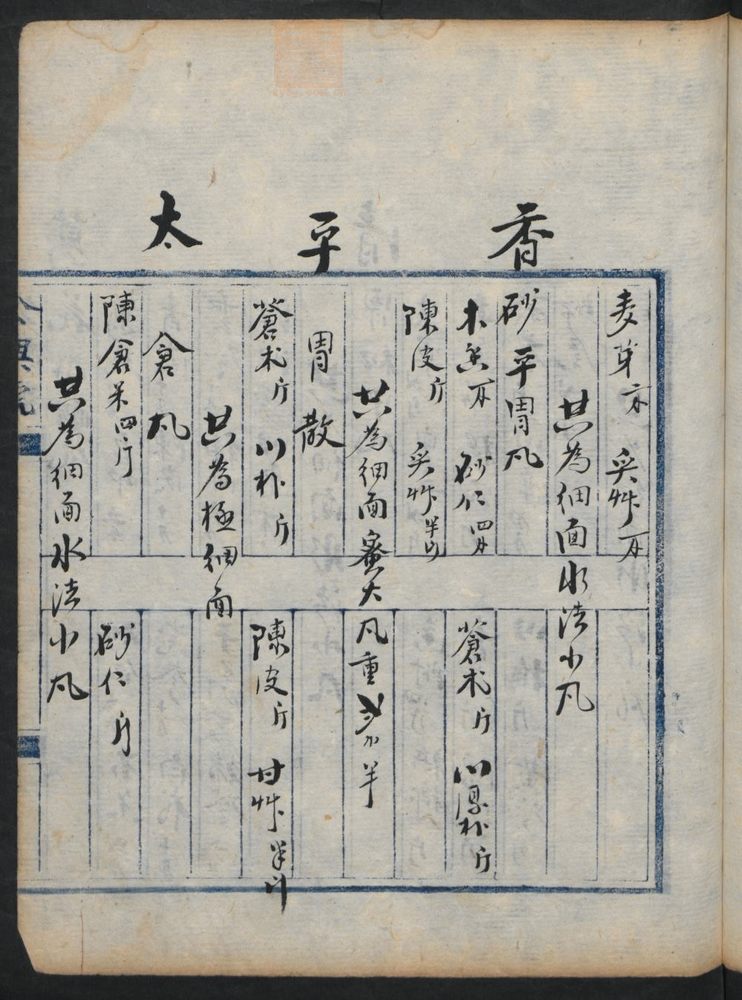 麦芽 炙艸
共為細面水法小凡
香砂平胃凡
木香 砂仁四两 蒼术斤 川厚朴斤
陳皮斤 炙艸半斤
共為細面蜜大凡重 半
平胃散
蒼术斤 川朴斤 陳皮斤 甘艸半斤
共為極細面
太倉凡
陳倉米四斤 砂仁斤
共為細面水法小凡